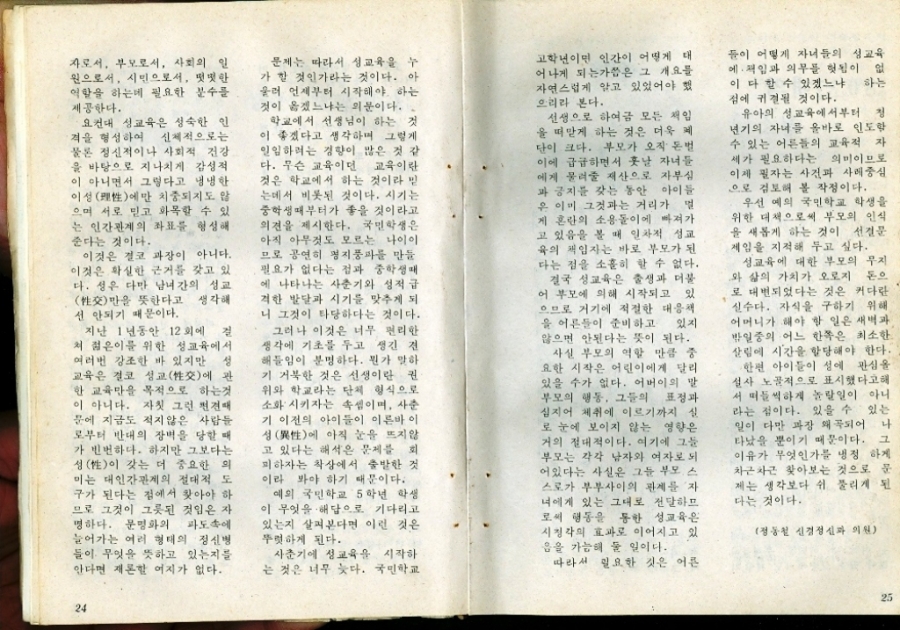 자로서, 부모로서, 사회의 일
원으로서, 시민으로서, 떳떳한
역할을 하는데 필요한 분수를
제공한다.
요컨대 성교육은 성숙한 인
격을 형성하여 신체적으로는
물론 정신적이나 사회적 건강
을 바탕으로 지나치게 감성적
이 아니면서 그렇다고 냉냉한
이성(理性)에만 치중되지도 않
으며 서로 믿고 화목할 수 있
는 인간관계의 좌표를 형성해
준다는 것이다.
이것은 결코 과장이 아니다.
이것은 확실한 근거를 갖고 있
다. 성은 다만 남녀간의 성교
(性交)만을 뜻한다고 생각해
선 안되기 때문이다.
지난 1년동안 12회에 걸
쳐 젊은이를 위한 성교육에서
여러번 강조한 바 있지만 성
교육은 결코 성교(性交)에 관
한 교육만을 목적으로 하는것
이 아니다. 자칫 그런 편견때
문에 지금도 적지않은 사람들
로부터 반대의 장벽을 당할 때
가 빈번하다. 하지만 그보다는
성(性)이 갖는 더 중요한 의
미는 대인간관계의 절대적 도
구가 된다는 점에서 찾아야 하
므로 그것이 그릇된 것임은 자
명하다. 문명화의 파도속에
늘어가는 여러 형태의 정신병
들이 무엇을 뜻하고 있는지를
안다면 재론할 여지가 없다.
24
문제는 따라서 성교육을 누
가 할 것인가라는 것이다. 아
울러 언제부터 시작해야 하는
것이 옳겠느냐는 의문이다.
학교에서 선생님이 하는 것
이 좋겠다고 생각하며 그렇게
일임하려는 경향이 많은 것 같
다. 무슨 교육이던 교육이란
것은 학교에서 하는 것이라 믿
는데서 비롯된 것이다. 시기는
중학생때부터가 좋을 것이라고
의견을 제시한다. 국민학생은
아직 아무것도 모르는 나이이
므로 공연히 평지풍파를 만들
필요가 없다는 점과 중학생때
에 나타나는 사춘기와 성적급
격한 발달과 시기를 맞추게 되
니 그것이 타당하다는 것이다.
그러나 이것은 너무 편리한
생각에 기초를 두고 생긴 견
해들임이 분명하다. 뭔가 말하
기 거북한 것은 선생이란 권
위와 학교라는 단체 형식으로
소화 시키자는 속셈이며, 사춘
기 이전의 아이들이 이른바 이
성(異性)에 아직 눈을 뜨지않
고 있다는 해석은 문제를 회
피하자는 착상에서 출발한 것
이라 봐야 하기 때문이다.
예의 국민학교 5학년 학생
이 무엇을 해답으로 기다리고
있는지 살펴본다면 이런 것은
뚜렷하게 된다.
사춘기에 성교육을 시작하
는 것은 너무 늦다. 국민학교
고학년이면 인간이 어떻게 태
어나게 되는가쯤은 그 개요를
자연스럽게 알고 있었어야 했
으리라 본다.
선생으로 하여금 모든 책임
을 떠맡게 하는 것은 더욱 폐
단이 크다. 부모가 오직 돈벌
이에 급급하면서 훗날 자녀들
에게 물려줄 재산으로 자부심
과 긍지를 갖는 동안 아이들
은 이미 그것과는 거리가 멀
게 혼란의 소용돌이에 빠져가
고 있음을 볼 때 일차적 성교
육의 책임자는 바로 부모가 된
다는 점을 소홀히 할 수 없다.
결국 성교육은 출생과 더불
어 부모에 의해 시작되고 있
으므로 거기에 적절한 대응책
을 어른들이 준비하고 있지
않으면 안된다는 뜻이 된다.
사실 부모의 역할 만큼 중
요한 시작은 어린이에게 달리
있을 수가 없다. 어버이의 말
부모의 행동, 그들의 표정과
심지어 체취에 이르기까지 실
로 눈에 보이지 않는 영향은
거의 절대적이다. 여기에 그들
부모는 각각 남자와 여자로 되
어있다는 사실은 그들 부모 스
스로가 부부사이의 관계를 자
녀에게 있는 그대로 전달하므
로써 행동을 통한 성교육은
시청각의 효과로 이어지고 있
음을 가늠해 둘 일이다.
따라서 필요한 것은 어른
들이 어떻게 자녀들의 성교육
에 책임과 의무를 헛됨이 없
이 다 할 수 있겠느냐 하는
점에 귀결될 것이다.
유아의 성교육에서부터 청
년기의 자녀를 올바로 인도할
수 있는 어른들의 교육적 자
세가 필요하다는 의미이므로
이제 필자는 사건과 사례중심
으로 검토해 볼 작정이다.
우선 예의 국민학교 학생을
위한 대책으로써 부모의 인식
을 새롭게 하는 것이 선결문
제임을 지적해 두고 싶다.
성교육에 대한 부모의 무지
와 삶의 가치가 오로지 돈으
로 대변되었다는 것은 커다란
실수다. 자식을 구하기 위해
어머니가 해야 할 일은 새벽과
밤일중의 어느 한쪽은 최소한
살림에 시간을 할당해야 한다.
한편 아이들이 성에 관심을
설사 노골적으로 표시했다고해
서 떠들썩하게 놀랄일이 아니
라는 점이다. 있을 수 있는
일이 다만 과장 왜곡되어 나
타났을 뿐이기 때문이다. 그
이유가 무엇인가를 냉정 하게
차근차근 찾아보는 것으로 문
제는 생각보다 쉬 풀리게 된
다는 것이다.
(정동철 신경정신과 의원)
25